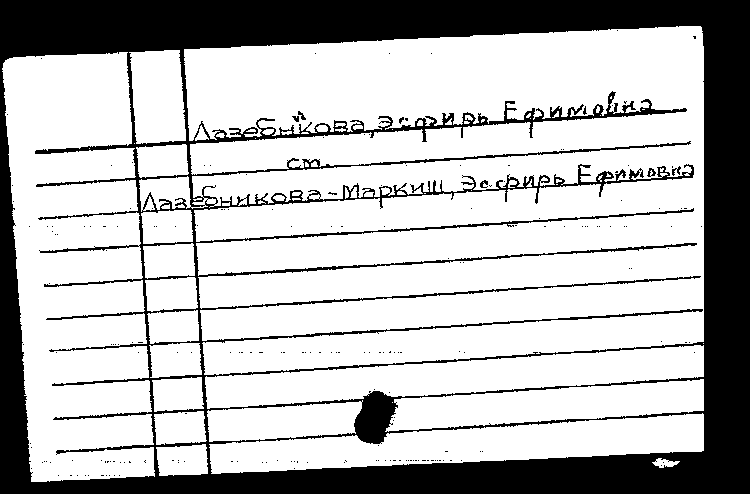 Лазебникова, Эсфирь Ефимовна
см.
Лазебникова-Маркиш, Эсфирь Ефимовна